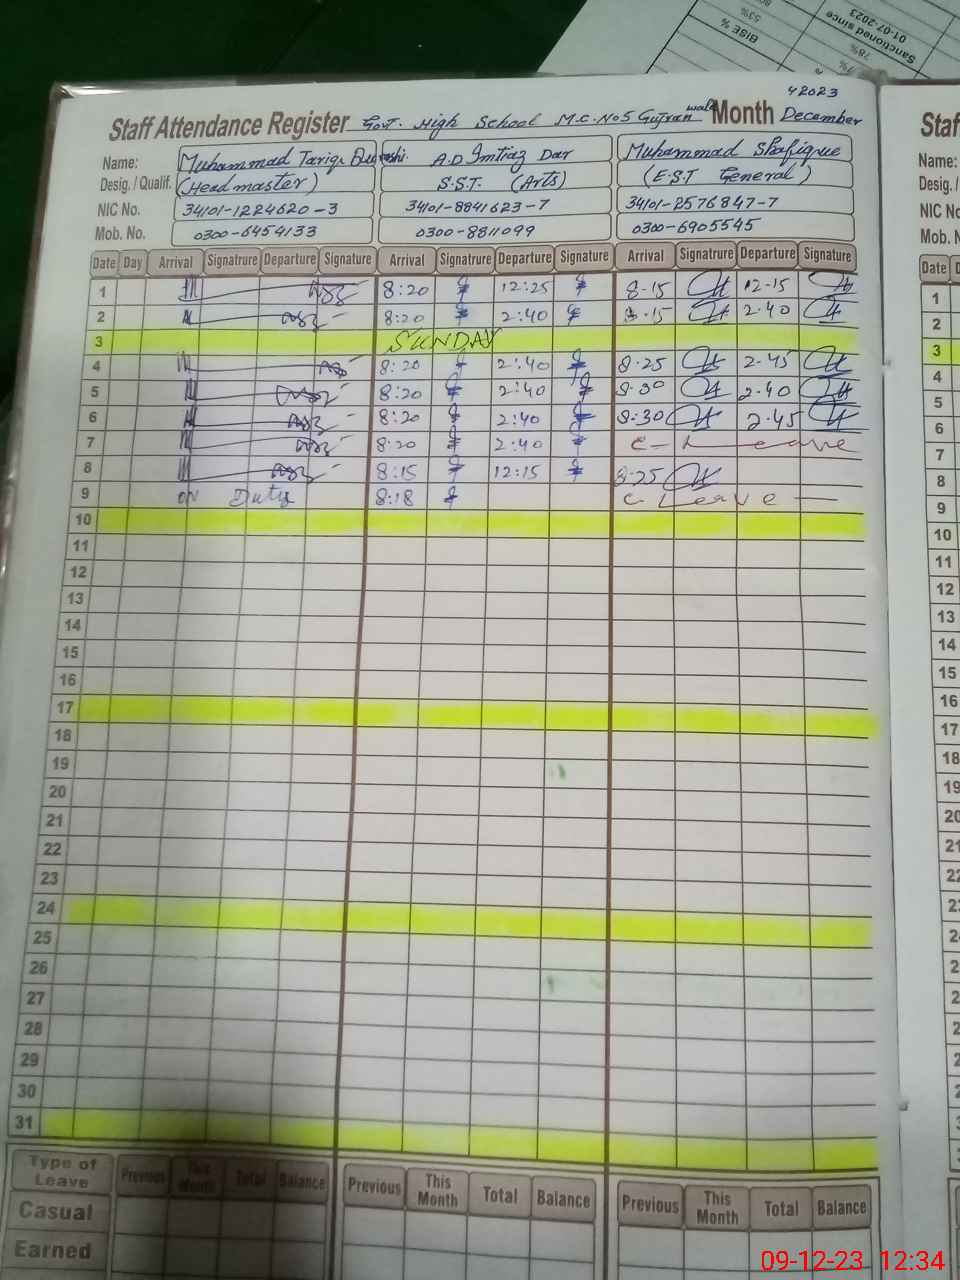 BISE %
53%
78%
Sanctioned since
01-07-2023
42023
Staff Attendance Register Govt. High School M.C. No5 Gujranwala Month December
Name: Muhammad Tariq A.D Imtiaz Dar Muhammad Shafique
Desig. / Qualif. (Headmaster) S.S.T. (Arts) (E.S.T General)
NIC No. 34101-1224620-3 34101-8841623-7 34101-2576847-7
Mob. No. 0300-6454133 0300-8811099 0300-6905545
Date Day Arrival Signatrure Departure Signature Arrival Signatrure Departure Signature Arrival Signatrure Departure Signature
1 8:20 12:25 8-15 12-15
2 8:20 2:40 8-15 2-40
3 SUNDAY
4 8:20 2:40 8-25 2-45
5 8:20 2:40 8-30 2-40
6 8:20 2:40 8:30 2-45
7 8:20 2:40 C-Leave
8 8:15 12:15 8-25
9 on Duty 8:18 C Leave
10
11
12
13
14
15
16
17
18
19
20
21
22
23
24
25
26
27
28
29
30
31
Type of Leave Previous This Month Total Balance Previous This Month Total Balance Previous This Month Total Balance
Casual
Earned
Staf
Name:
Desig./
NIC No
Mob. N
Date
1
2
3
4
5
6
7
8
9
10
11
12
13
14
15
16
17
18
19
20
09-12-23 12:34